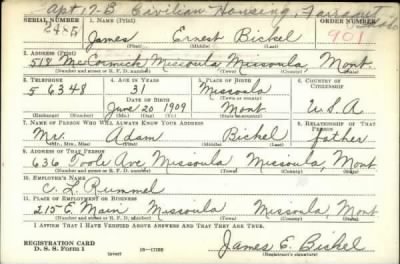 Apt 17-B Civilian Housing, Fairmont
SERIAL NUMBER
1. NAME (Print)
ORDER NUMBER
James Ernest Bickel
901
(First) (Middle) (Last)
2. ADDRESS (Print)
518 McCormick Missoula Missoula, Mont
(Number and street or R. F. D. number) (Town) (County) (State)
3. TELEPHONE
4. AGE IN YEARS
5. PLACE OF BIRTH
6. COUNTRY OF CITIZENSHIP
5 6348
31
Missoula
DATE OF BIRTH
(Town or county)
June 20 1909
Mont
U.S.A
(Exchange) (Number)
(Mo.) (Day) (Yr.)
(State or country)
7. NAME OF PERSON WHO WILL ALWAYS KNOW YOUR ADDRESS
8. RELATIONSHIP OF THAT PERSON
Mr. Adam Bickel
father
(Mr., Mrs., Miss) (First) (Middle) (Last)
9. ADDRESS OF THAT PERSON
636 Toole Ave Missoula Missoula, Mont
(Number and street or R. F. D. number) (Town) (County) (State)
10. EMPLOYER'S NAME
C. L. Rummel
11. PLACE OF EMPLOYMENT OR BUSINESS
215 E Main Missoula Missoula, Mont
(Number and street or R. F. D. number) (Town) (County) (State)
I AFFIRM THAT I HAVE VERIFIED ABOVE ANSWERS AND THAT THEY ARE TRUE.
REGISTRATION CARD
D. S. S. Form 1
James E. Bickel
(Registrant's signature)